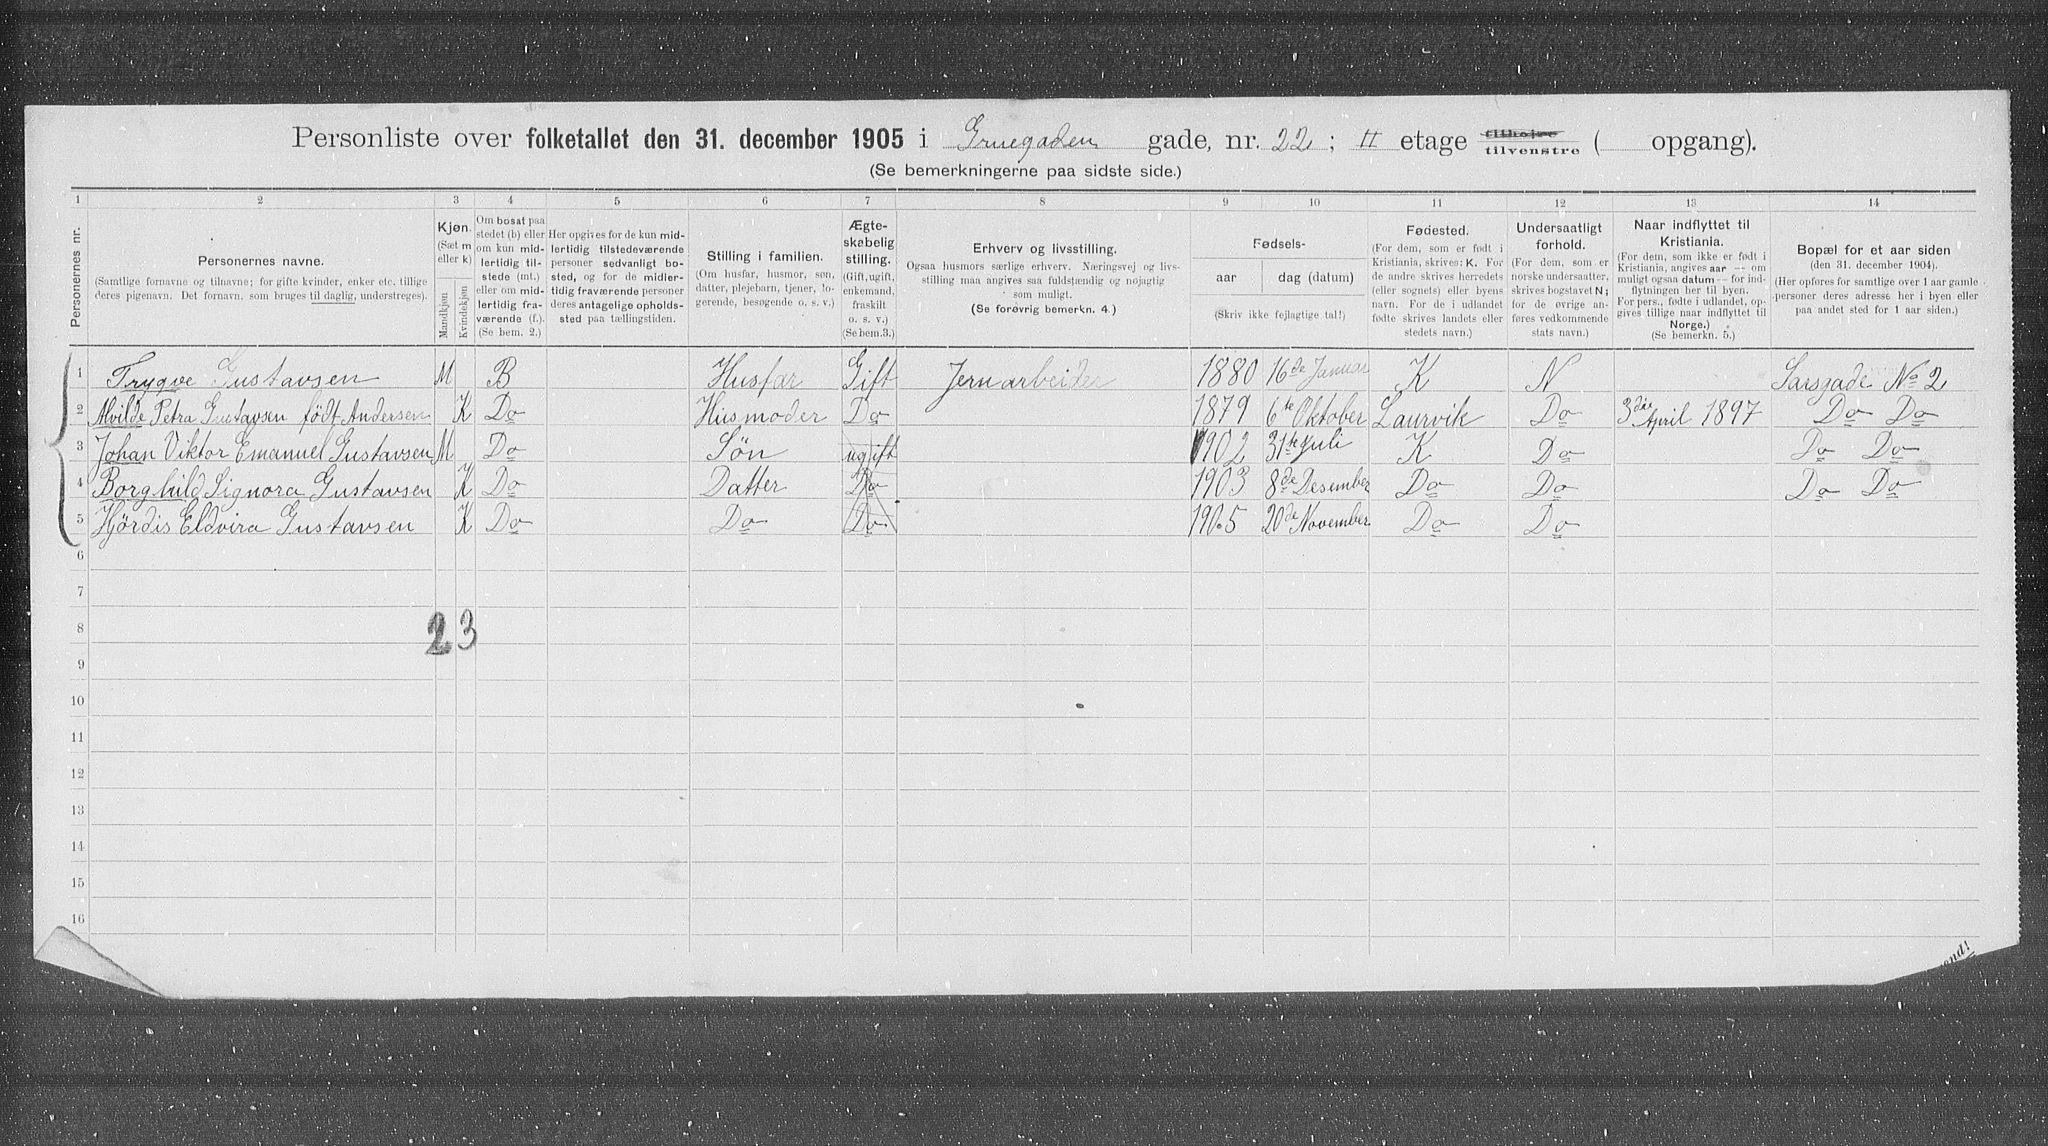 Personliste over folketallet den 31. december 1905 i Gruegaden gade, nr. 22; II etage tilhøjre tilvenstre ( opgang).
(Se bemerkningerne paa sidste side.)
1 2 3 4 5 6 7 8 9 10 11 12 13 14
Personernes nr.
Personernes navne.
(Samtlige fornavne og tilnavne; for gifte kvinder, enker etc. tillige
deres pigenavn. Det fornavn, som bruges til daglig, understreges).
Kjøn.
(Sæt m
eller k)
Mandkjøn
Kvindekjøn
Om bosat paa
stedet (b) eller
om kun mid-
lertidig til-
stede (mt.)
eller om mid-
lertidig fra-
værende (f.).
(Se bem. 2.)
Her opgives for de kun mid-
lertidig tilstedeværende
personer sedvanligt bo-
sted, og for de midler-
tidig fraværende personer
deres antagelige opholds-
sted paa tællingstiden.
Stilling i familien.
(Om husfar, husmor, søn,
datter, plejebarn, tjener, lo-
gerende, besøgende o. s. v.)
Ægte-
skabelig
stilling.
(Gift, ugift,
enkemand,
fraskilt
o. s. v.)
(Se bem. 3.)
Erhverv og livsstilling.
Ogsaa husmors særlige erhverv. Næringsvej og livs-
stilling maa angives saa fuldstændig og nøjagtig
som muligt.
(Se forøvrig bemerkn. 4.)
Fødsels-
aar dag (datum)
(Skriv ikke fejlagtige tal!)
Fødested.
(For dem, som er født i
Kristiania, skrives: K. For
de andre skrives herredets
(eller sognets) eller byens
navn. For de i udlandet
fødte skrives landets eller
stedets navn.)
Undersaatligt
forhold.
(For dem, som er
norske undersaatter,
skrives bogstavet N;
for de øvrige an-
føres vedkommende
stats navn.)
Naar indflyttet til
Kristiania.
(For dem, som ikke er født i
Kristiania, angives aar — om
muligt ogsaa datum — for ind-
flytningen her til byen.
For pers., fødte i udlandet, op-
gives tillige naar indflyttet til
Norge.)
(Se bemerkn. 5.)
Bopæl for et aar siden
(den 31. december 1904).
(Her opføres for samtlige over 1 aar gamle
personer deres adresse her i byen eller
paa andet sted for 1 aar siden.)
1 Trygve Gustavsen M B Husfar Gift Jernarbeider 1880 16de Januar K N Sarsgade No 2
2 Alvilde Petra Gustavsen født Andersen K Do Husmoder Do 1879 6te Oktober Laurvik Do 3die April 1897 Do Do
3 Johan Viktor Emanuel Gustavsen M Do Søn ugift 1902 31te Juli K Do Do Do
4 Borghild Signora Gustavsen K Do Datter Do 1903 8de Desember Do Do Do Do
5 Hjördis Eldvira Gustavsen K Do Do Do 1905 20de November Do Do
6
7
8 2 3
9
10
11
12
13
14
15
16